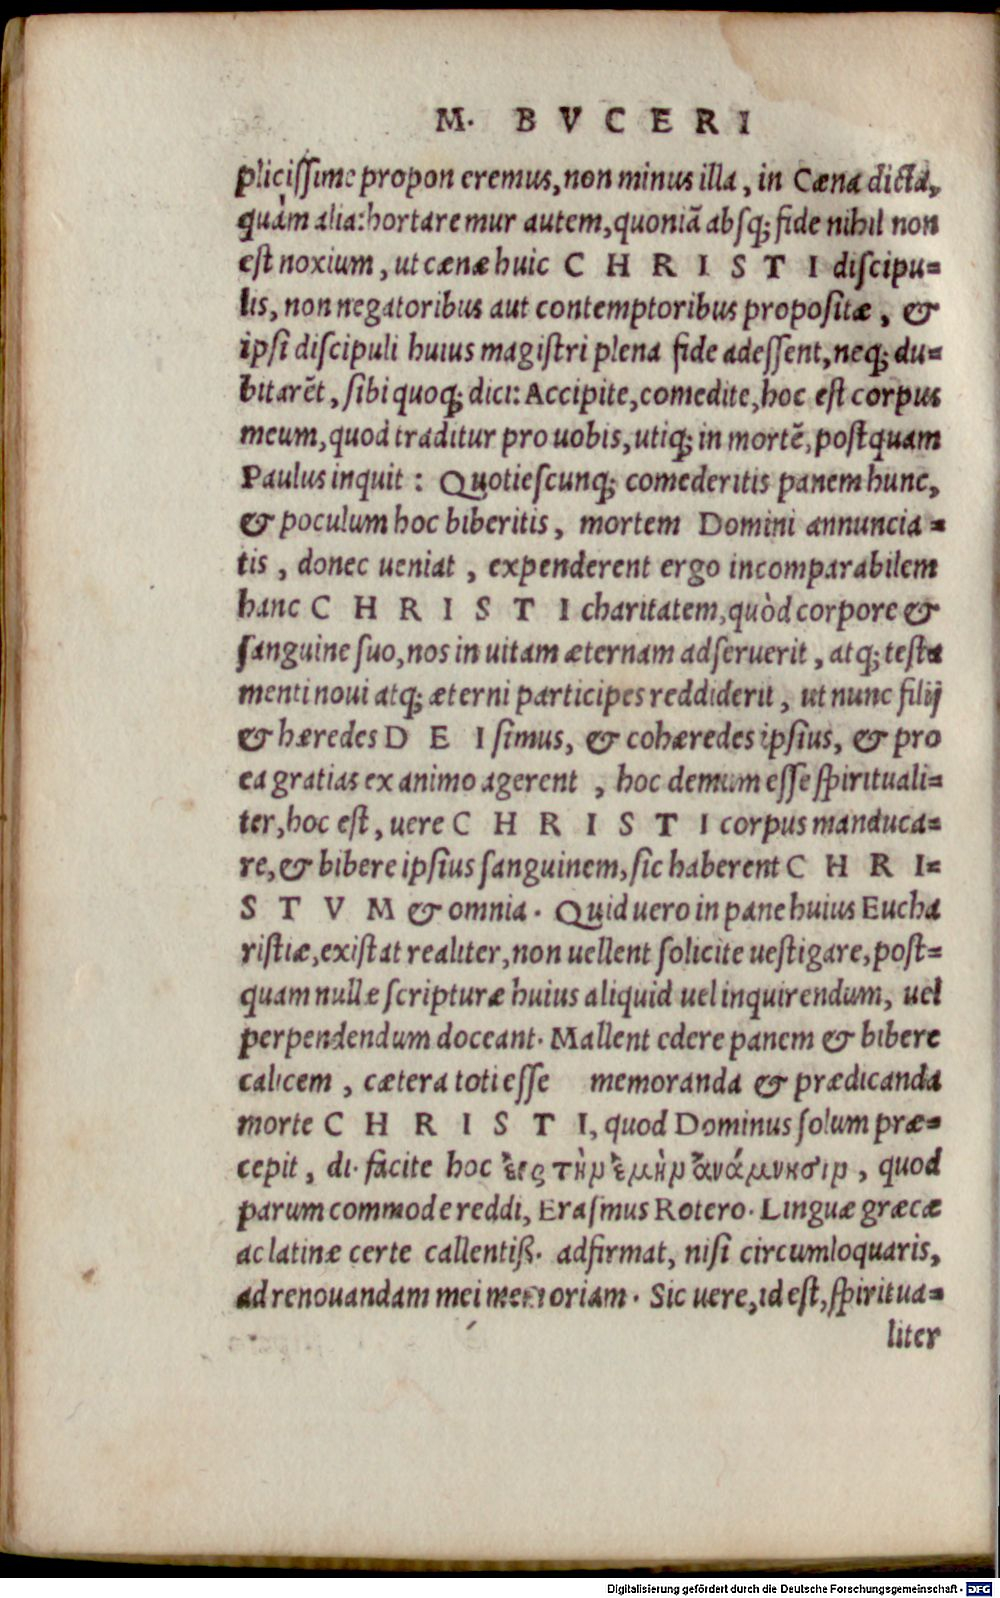 M. BVCERI
plicissime proponeremus, non minus illa, in Cæna dicta,
quàm alia: hortaremur autem, quoniā absq; fide nihil non
est noxium, ut cænæ huic CHRISTI discipu=
lis, non negatoribus aut contemptoribus propositæ, &
ipsi discipuli huius magistri plena fide adessent, neq; du=
bitarēt, sibi quoq; dici: Accipite, comedite, hoc est corpus
meum, quod traditur pro uobis, utiq; in mortē, postquam
Paulus inquit: Quotiescunq; comederitis panem hunc,
& poculum hoc biberitis, mortem Domini annuncia=
tis, donec ueniat, expenderent ergo incomparabilem
hanc CHRISTI charitatem, quòd corpore &
sanguine suo, nos in uitam æternam adseruerit, atq; testa
menti noui atq; æterni participes reddiderit, ut nunc filij
& hæredes DEI simus, & cohæredes ipsius, & pro
ea gratias ex animo agerent, hoc demum esse spirituali=
ter, hoc est, uere CHRISTI corpus manduca=
re, & bibere ipsius sanguinem, sic haberent CHRI=
STVM & omnia. Quid uero in pane huius Eucha
ristiæ, existat realiter, non uellent solicite uestigare, post=
quam nullæ scripturæ huius aliquid uel inquirendum, uel
perpendendum doceant. Mallent edere panem & bibere
calicem, cætera toti esse memoranda & prædicanda
morte CHRISTI, quod Dominus solum præ=
cepit, di. facite hoc ἐις τὴν ἐμὴν ἀνάμνησιν, quod
parum commode reddi, Erasmus Rotero. Linguæ græcæ
ac latinæ certe callentiß. adfirmat, nisi circumloquaris,
ad renouandam mei memoriam. Sic uere, id est, spiritua=
liter
Digitalisierung gefördert durch die Deutsche Forschungsgemeinschaft - DFG